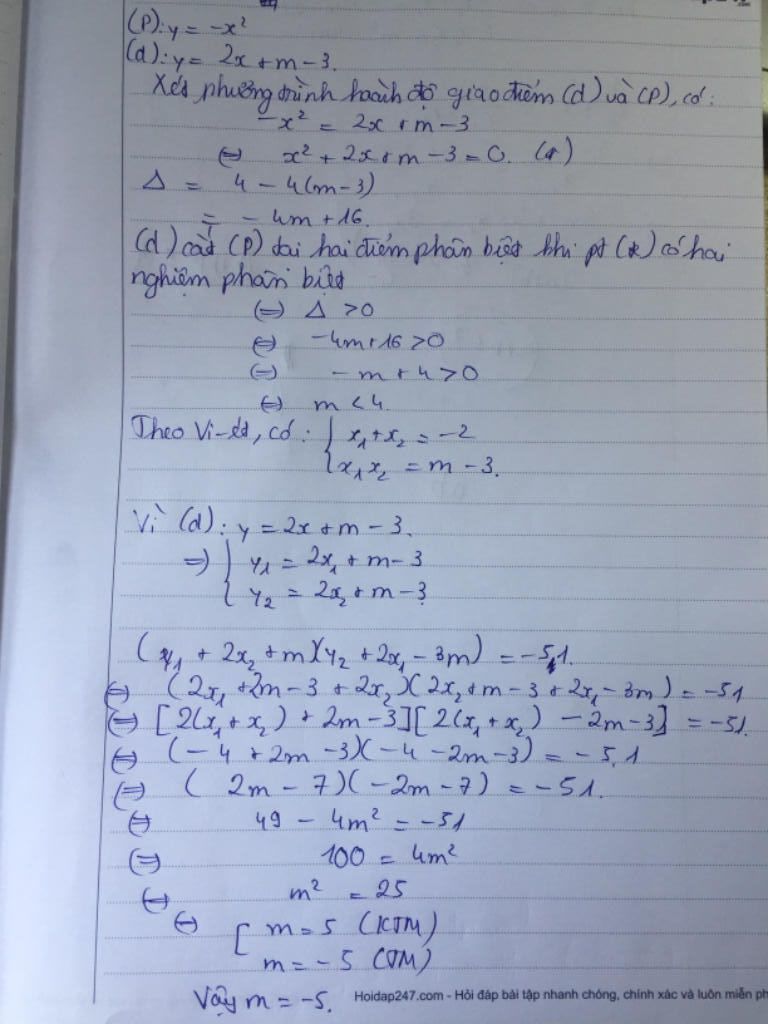 (P): y = -x²
(d): y = 2x + m - 3.
Xét phương trình hoành độ giao điểm (d) và (P), có:
-x² = 2x + m - 3
⇔ x² + 2x + m - 3 = 0. (*)
Δ = 4 - 4(m - 3)
= -4m + 16.
(d) cắt (P) tại hai điểm phân biệt khi pt (*) có hai
nghiệm phân biệt
⇔ Δ > 0
⇔ -4m + 16 > 0
⇔ -m + 4 > 0
⇔ m < 4.
Theo Vi-ét, có: { x₁ + x₂ = -2
{ x₁x₂ = m - 3.
Vì (d): y = 2x + m - 3.
⇒ { y₁ = 2x₁ + m - 3
{ y₂ = 2x₂ + m - 3
(y₁ + 2x₂ + m)(y₂ + 2x₁ - 3m) = -51.
⇔ (2x₁ + 2m - 3 + 2x₂)(2x₂ + m - 3 + 2x₁ - 3m) = -51
⇔ [2(x₁ + x₂) + 2m - 3][2(x₁ + x₂) - 2m - 3] = -51.
⇔ (-4 + 2m - 3)(-4 - 2m - 3) = -51
⇔ (2m - 7)(-2m - 7) = -51.
⇔ 49 - 4m² = -51
⇔ 100 = 4m²
⇔ m² = 25
⇔ [ m = 5 (KTM)
[ m = -5 (TM)
Vậy m = -5.
Hoidap247.com - Hỏi đáp bài tập nhanh chóng, chính xác và luôn miễn ph